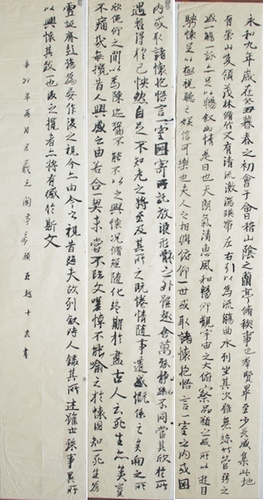 永和九年歲在癸丑暮春之初會于會稽山陰之蘭亭脩稧事也群賢畢至少長咸集此地
有崇山峻領茂林脩竹又有清流激湍暎帶左右引以為流觴曲水列坐其次雖無絲竹管弦之
盛一觴一詠亦足以暢敘幽情是日也天朗氣清惠風和暢仰觀宇宙之大俯察品類之盛所以遊目
騁懷足以極視聽之娛信可樂也夫人之相與俯仰一世或取諸懷抱悟言一室之內或因
內或取諸懷抱悟言一室因寄所託放浪形骸之外雖趣舍萬殊靜躁不同當其欣於所
遇暫得於己快然自足不知老之將至及其所之既惓情隨事遷感慨係之矣向之所
欣俛仰之間以為陳迹猶不能不以之興懷況脩短隨化終期於盡古人云死生亦大矣豈
不痛哉每攬昔人興感之由若合一契未嘗不臨文嗟悼不能喻之於懷固知一死生為
虛誕齊彭殤為妄作後之視今亦由今之視昔悲夫故列敘時人錄其所述雖世殊事異所
以興懷其致一也後之攬者亦將有感於斯文
辛卯年月羲之蘭亭序